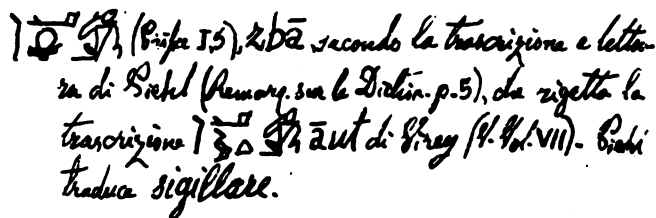 (Prisse I,5), zbā, secondo la trascrizione e lettu-
ra di Piehl (Remarq. sur le Diction. p. 5), che rigetta la
trascrizione āut di Virey (V. Vol. VII). Piehl
traduce sigillare.